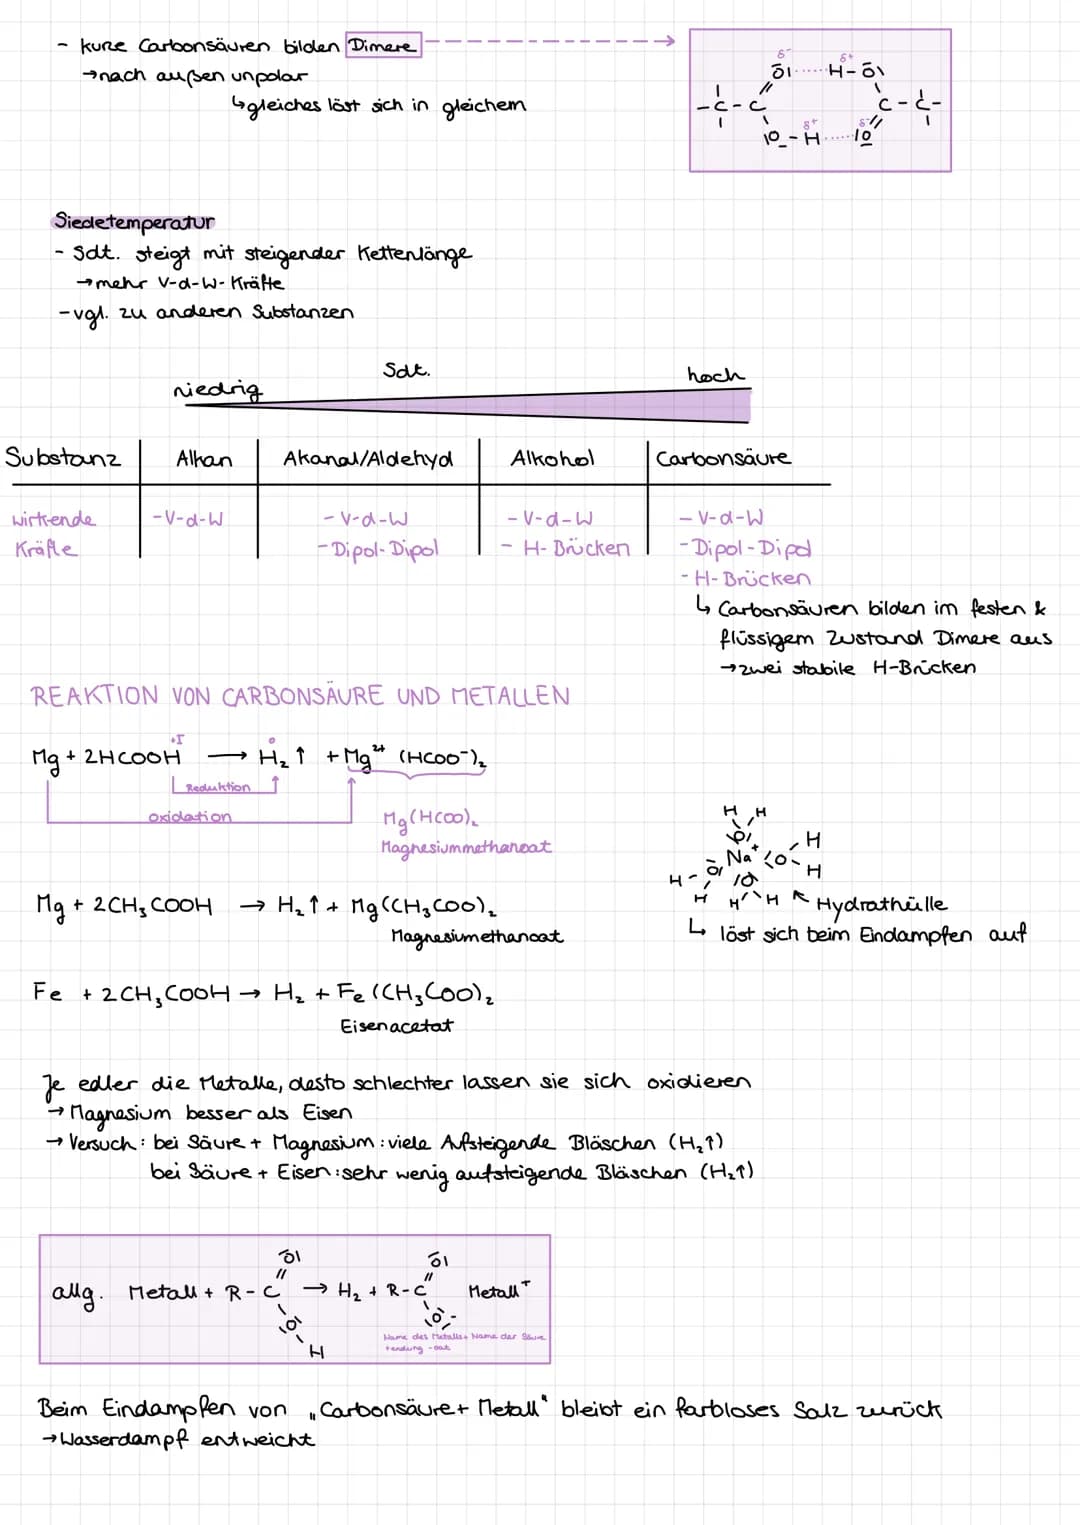 - kurze Carbonsäuren bilden Dimere
→ nach außen unpolar
↳ gleiches löst sich in gleichem
δ- δ+
O| ······ H-O\
-C-C C-C-
δ+ δ-
|O-H ······ |O
Siedetemperatur
- Sdt. steigt mit steigender Kettenlänge
→ mehr V-d-W-Kräfte
- vgl. zu anderen Substanzen
niedrig Sdt. hoch
Substanz | Alkan | Akanal/Aldehyd | Alkohol | Carbonsäure
wirkende Kräfte | - V-d-W | - V-d-W - Dipol-Dipol | - V-d-W - H-Brücken | - V-d-W - Dipol-Dipol - H-Brücken
↳ Carbonsäuren bilden im festen &
flüssigem Zustand Dimere aus
→ zwei stabile H-Brücken
REAKTION VON CARBONSÄURE UND METALLEN
+I 0
Mg + 2HCOOH → H₂↑ + Mg²⁺ (HCOO⁻)₂
Reduktion
oxidation
Mg(HCOO)₂
Magnesiummethanoat
H H
O H
Na⁺ |O- H
H-O |O
H H H
Hydrathülle
↳ löst sich beim Eindampfen auf
Mg + 2CH₃COOH → H₂↑ + Mg(CH₃COO)₂
Magnesiumethanoat
Fe + 2CH₃COOH → H₂ + Fe(CH₃COO)₂
Eisenacetat
Je edler die Metalle, desto schlechter lassen sie sich oxidieren
→ Magnesium besser als Eisen
→ Versuch: bei Säure + Magnesium: viele Aufsteigende Bläschen (H₂↑)
bei Säure + Eisen: sehr wenig aufsteigende Bläschen (H₂↑)
O| O|
allg. Metall + R-C → H₂ + R-C Metall⁺
|O| |O|-
H
Name des Metalls + Name der Säure
+ endung -oat
Beim Eindampfen von „Carbonsäure + Metall" bleibt ein farbloses Salz zurück
→ Wasserdampf entweicht